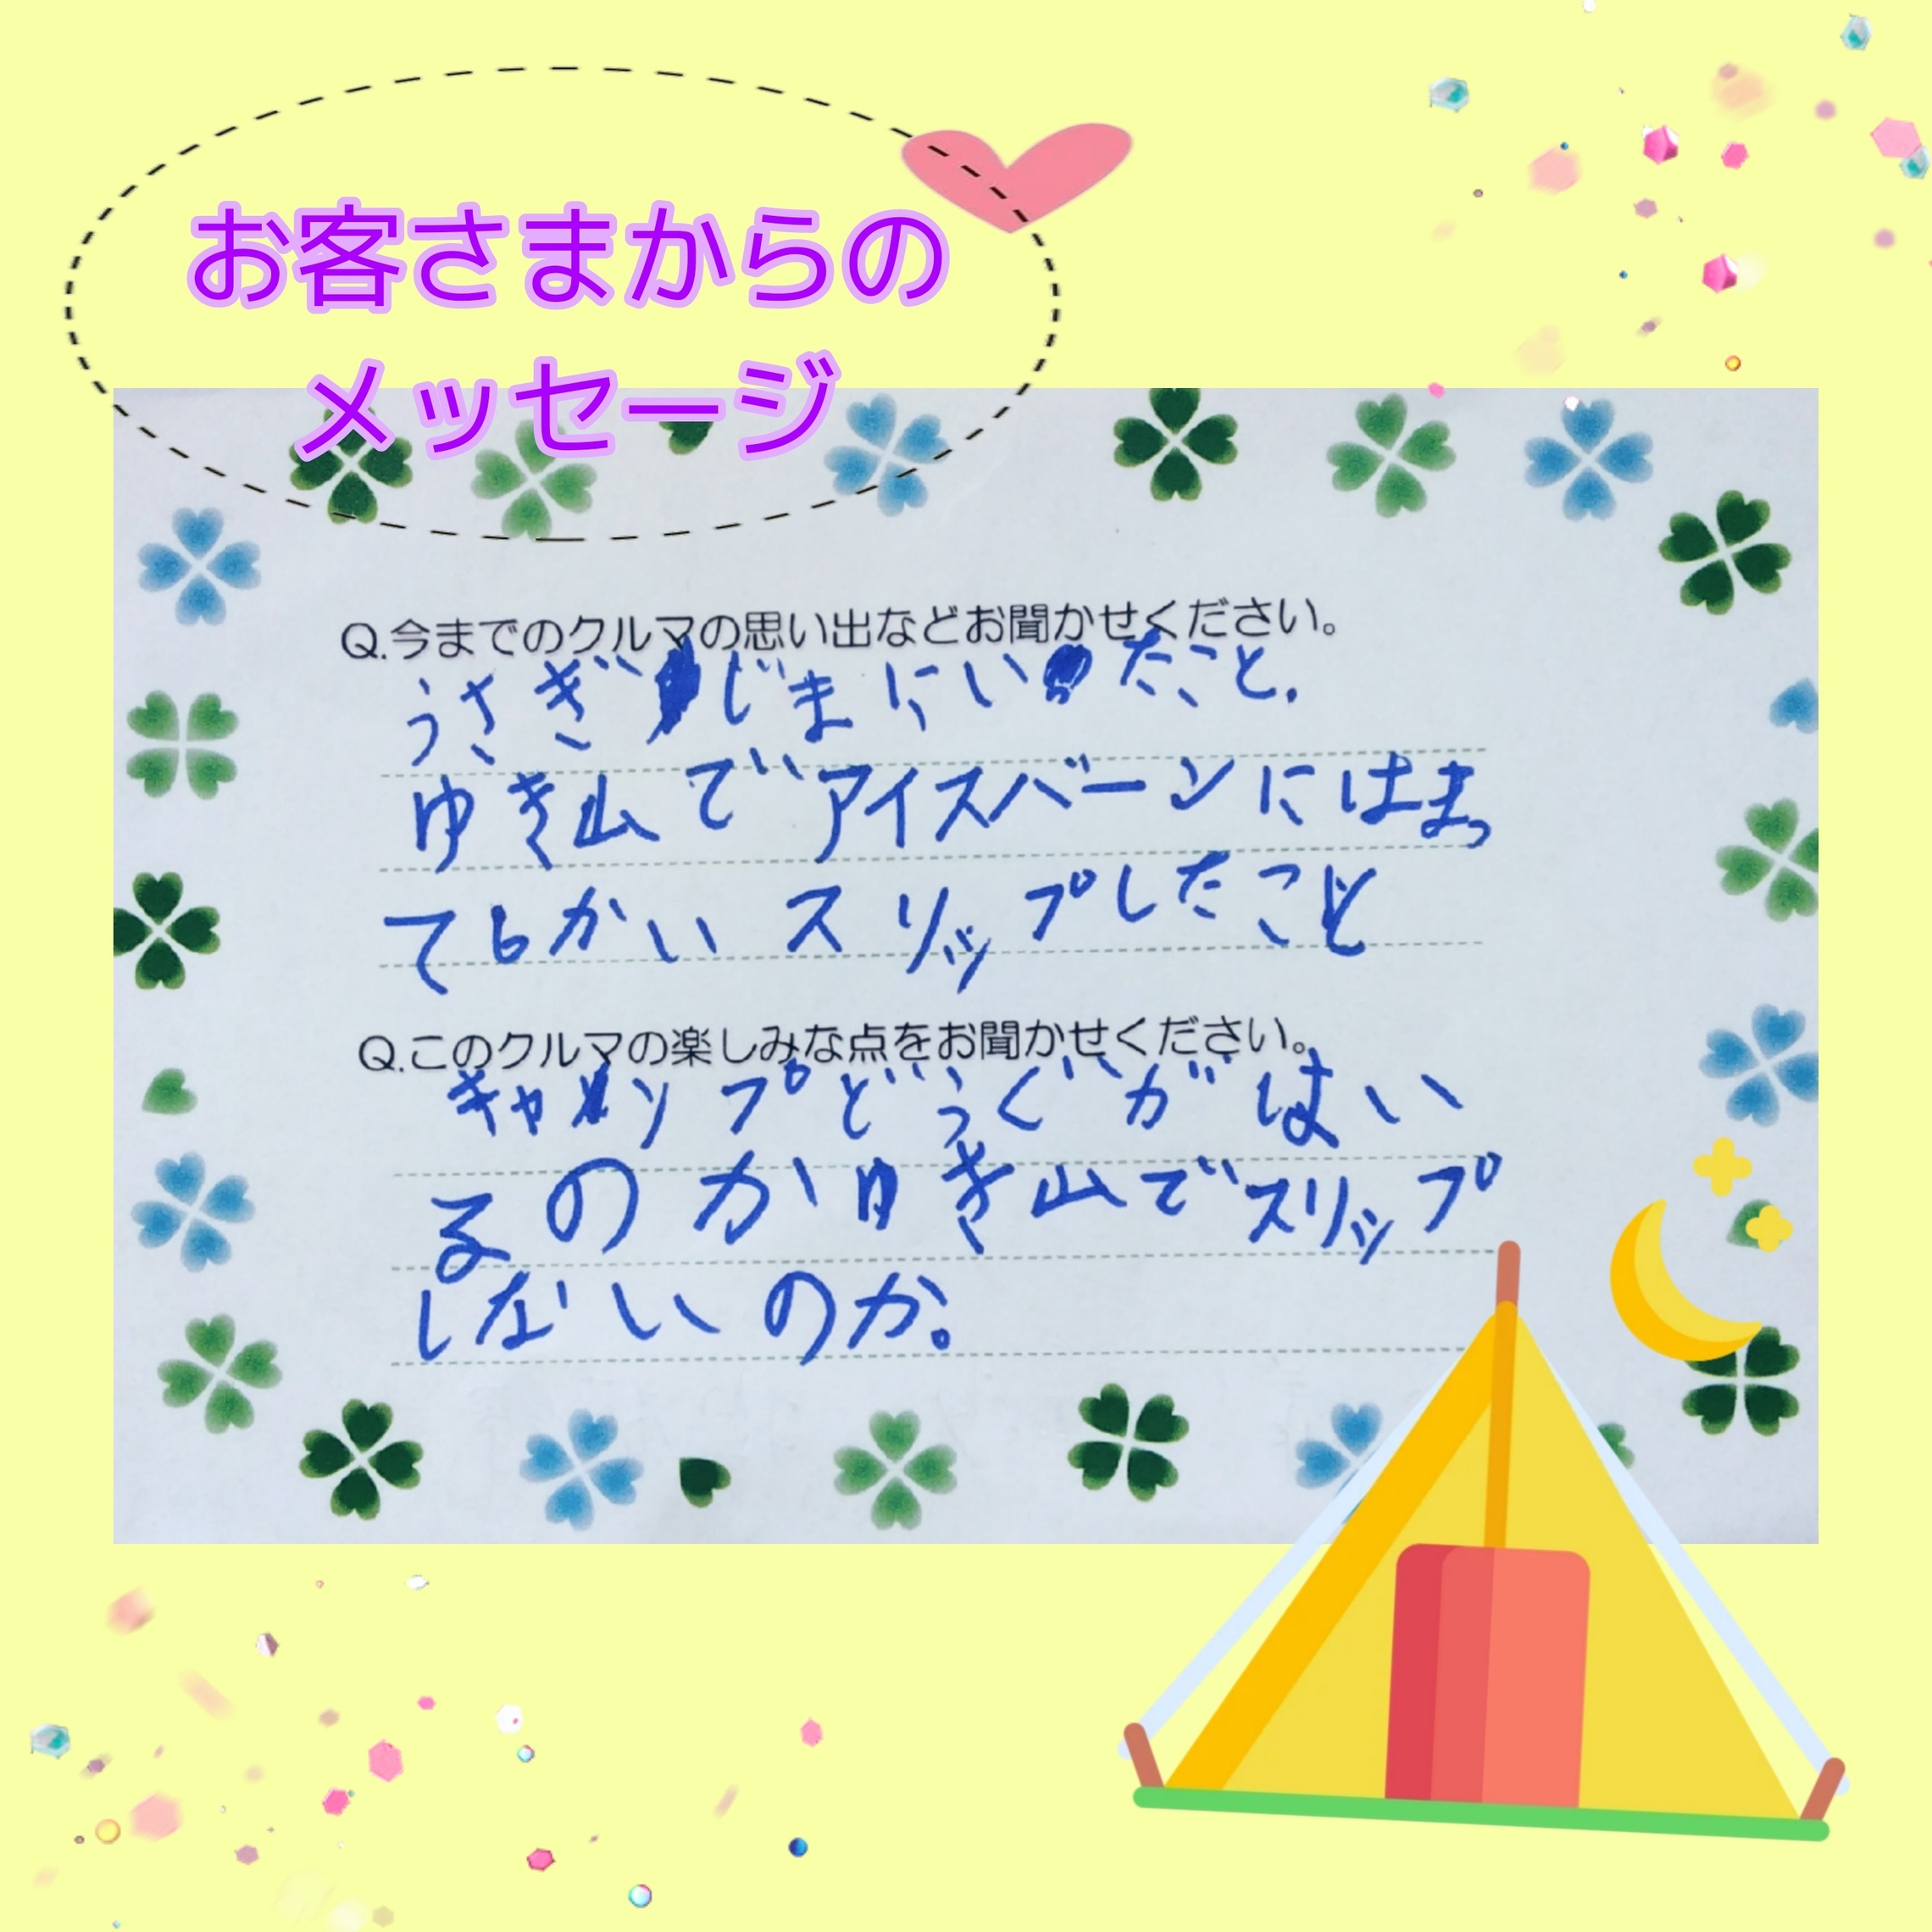 お客さまからの
メッセージ
Q.今までのクルマの思い出などお聞かせください。
うさぎじまにいたこと.
ゆき山でアイスバーンにはまっ
て6かいスリップしたこと
Q.このクルマの楽しみな点をお聞かせください。
キャンプどうぐがはい
るのかゆき山でスリップ
しないのか。